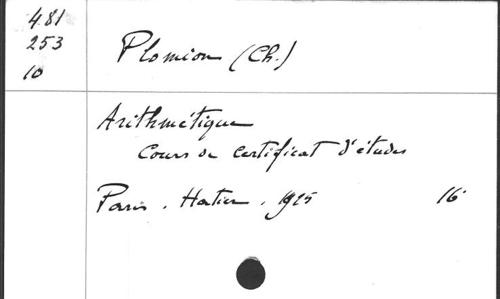 481
253
10
Plomion (Ch.)
Arithmétique
Cours de certificat d'études
Paris. Hatier. 1925 16